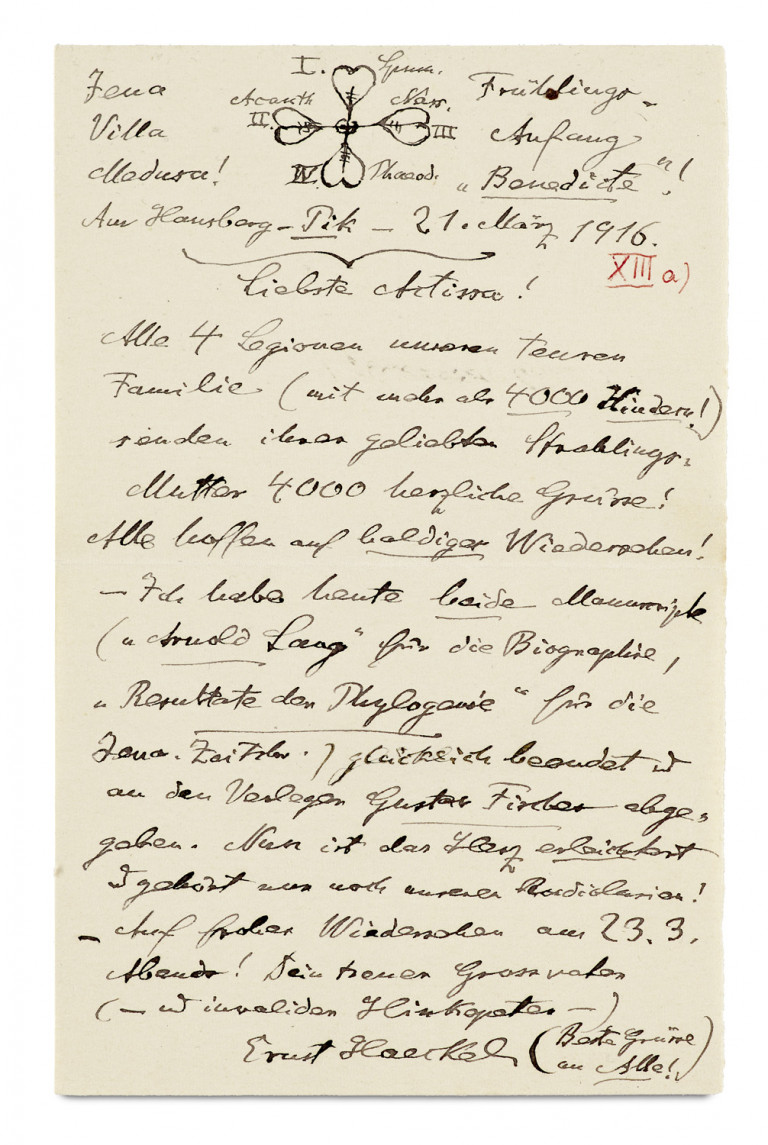 I. Spum.
Jena Acanth Nass. Frühlings-
II. III
Villa Anfang
Medusa! IV. Phaeod. „Benedicte"!
Am Hausberg-Pik - 21. März 1916.
XIII a)
Liebste Actissa!
Alle 4 Legionen unserer teuren
Familie (mit mehr als 4000 Kindern!)
senden ihrer geliebten Strahlings-
Mutter 4000 herzliche Grüsse!
Alle hoffen auf baldiges Wiedersehen!
– Ich habe heute beide Manuscripte
(„Arnold Lang" für die Biographie,
„Resultate der Phylogenie" für die
Jena. Zeitschr.) glücklich beendet u
an den Verleger Gustav Fischer abge-
geben. Nun ist das Herz erleichtert
u gehört nur noch unseren Radiolarien!
– Auf frohes Wiedersehen am 23.3.
Abends! Dein treuer Grossvater
(– u invalider Hinkepeter –)
Ernst Haeckel (Beste Grüsse
an Alle!)